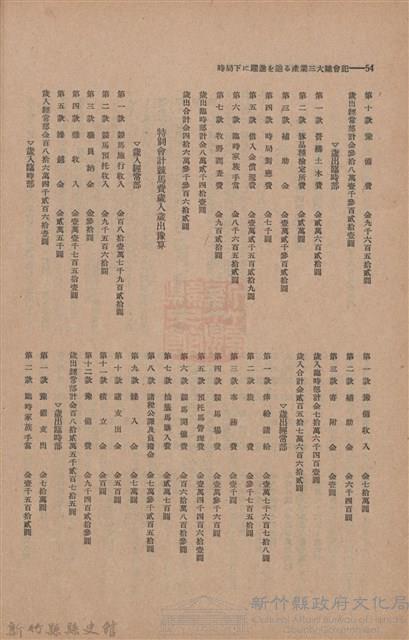 時局下に躍進を辿る產業三大總會記——54
第十款 豫備費 金九千六百五拾貳圓
歲出經常部計金參拾八萬壹千參百貳拾參圓
▽歲出臨時部
第一款 營繕土木費 金貳萬六百貳拾圓
第二款 豚品種檢定所費 金貳萬圓
第三款 補助金 金壹萬貳千參百貳拾圓
第四款 時局對應費 金七千圓
第五款 借入金償還費 金壹萬貳千五百貳拾九圓
第六款 臨時家族手當 金八千六百五拾貳圓
第七款 牧野調查費 金九百貳拾圓
歲出臨時部計金八萬貳千四拾壹圓
歲出合計金四拾六萬參千參百六拾貳圓
特別會計競馬費歲入歲出豫算
▽歲入經常部
第一款 競馬施行收入 金百八拾壹萬七千九百貳拾圓
第二款 競馬預託收入 金九千五百六拾圓
第三款 職員納金 金參拾圓
第四款 雜收入 金壹萬壹千七百五拾壹圓
第五款 繰越金 金貳萬五千圓
歲入經常部金百八拾六萬四千貳百六拾壹圓
▽歲入臨時部
第一款 豫備收入 金七拾萬圓
第二款 補助金 金六千四百圓
第三款 寄附金 金壹圓
歲入臨時部計金七拾萬六千四百壹圓
歲入合計金貳百五拾七萬六百六拾貳圓
▽歲出經常部
第一款 俸給諸給 金壹萬七千六百七拾八圓
第二款 旅費 金壹萬參千六百圓
第三款 事務費 金壹千圓
第四款 競馬場費 金壹萬參千六百圓
第五款 預託馬管理費 金壹萬四千四百六拾壹圓
第六款 競馬開催費 金百六拾萬八百參拾圓
第七款 抽籤馬購入費 金貳萬七百圓
第八款 諸稅公課及負擔金 金七萬參千貳百五拾圓
第九款 繰入金 金七萬圓
第十款 諸支出金 金五百圓
第十一款 積立金 金百圓
第十二款 豫備費 金九千四百貳拾參圓
歲出經常部計金百八拾貳萬五千貳百七拾五圓
▽歲出臨時部
第一款 豫備支出 金七拾萬圓
第二款 臨時家族手當 金壹千五百拾貳圓
新竹縣縣史館
新竹縣政府文化局
Cultural Affairs Bureau of Hsinchu County Government